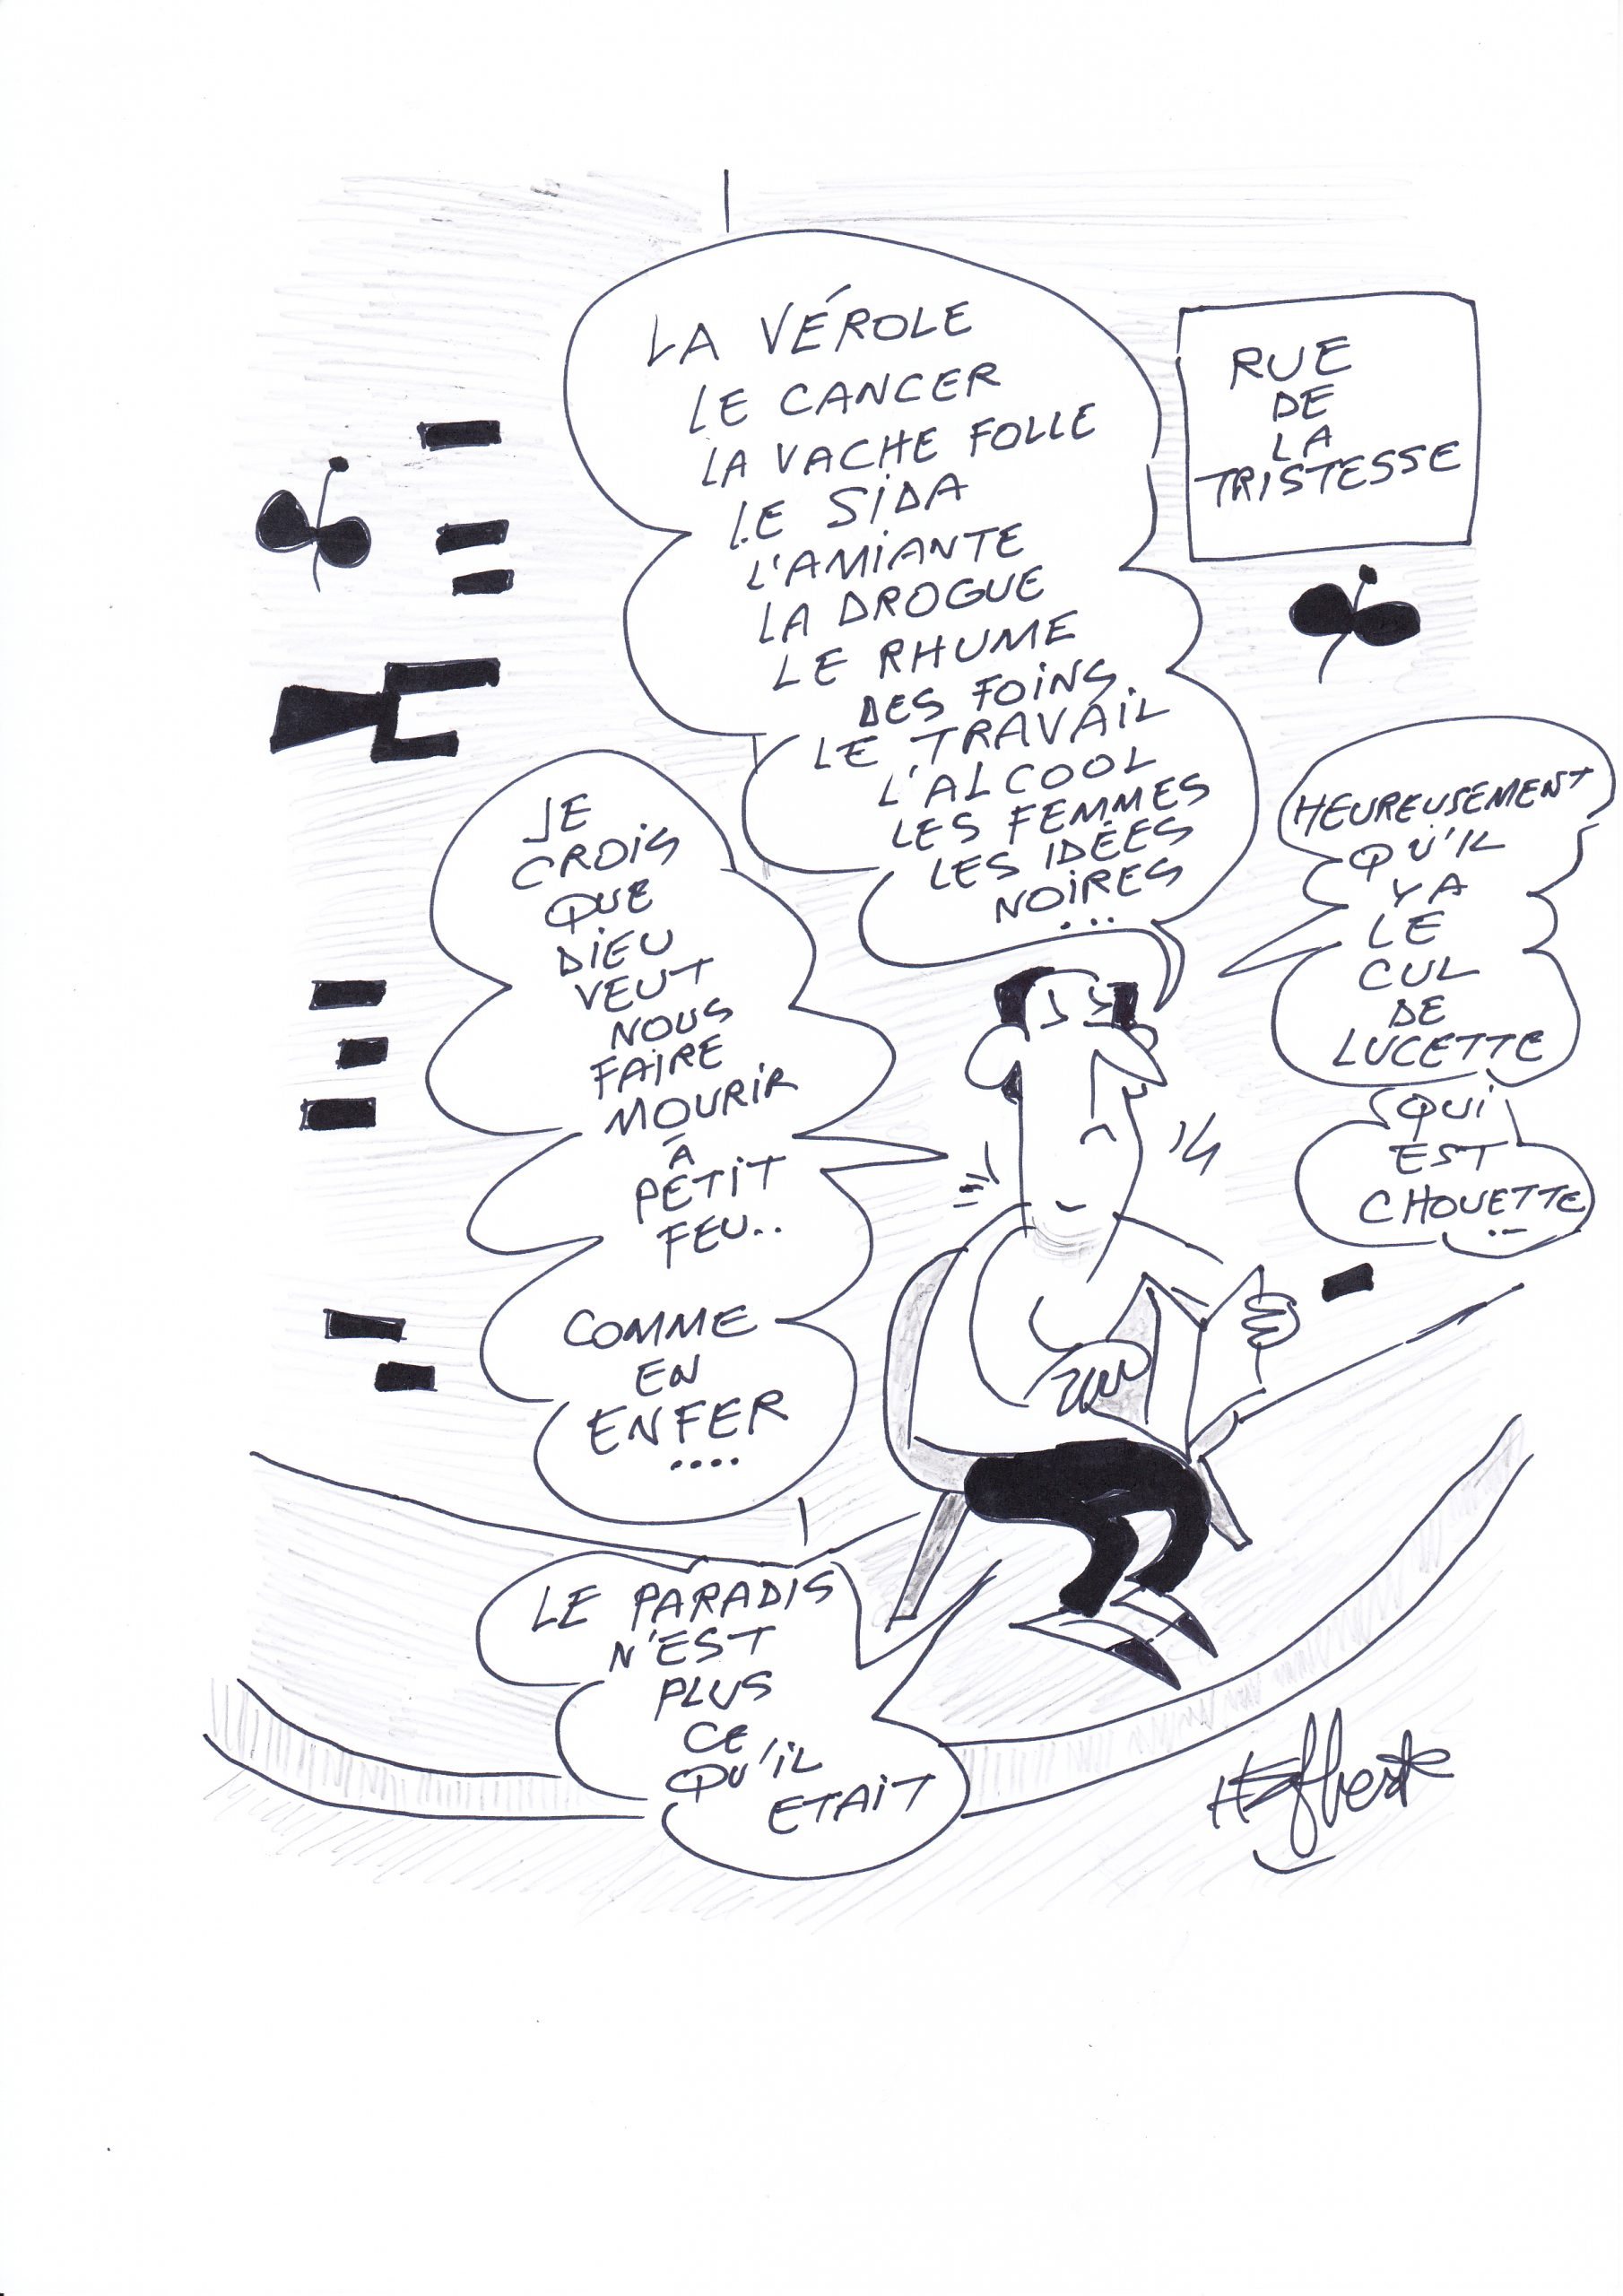 LA VÉROLE
LE CANCER
LA VACHE FOLLE
LE SIDA
L'AMIANTE
LA DROGUE
LE RHUME
DES FOINS
LE TRAVAIL
L'ALCOOL
LES FEMMES
LES IDÉES
NOIRES
...
RUE
DE
LA
TRISTESSE
JE
CROIS
QUE
DIEU
VEUT
NOUS
FAIRE
MOURIR
À
PETIT
FEU..
COMME
EN
ENFER
....
HEUREUSEMENT
QU'IL
Y A
LE
CUL
DE
LUCETTE
QUI
EST
CHOUETTE
..
LE PARADIS
N'EST
PLUS
CE
QU'IL
ETAIT